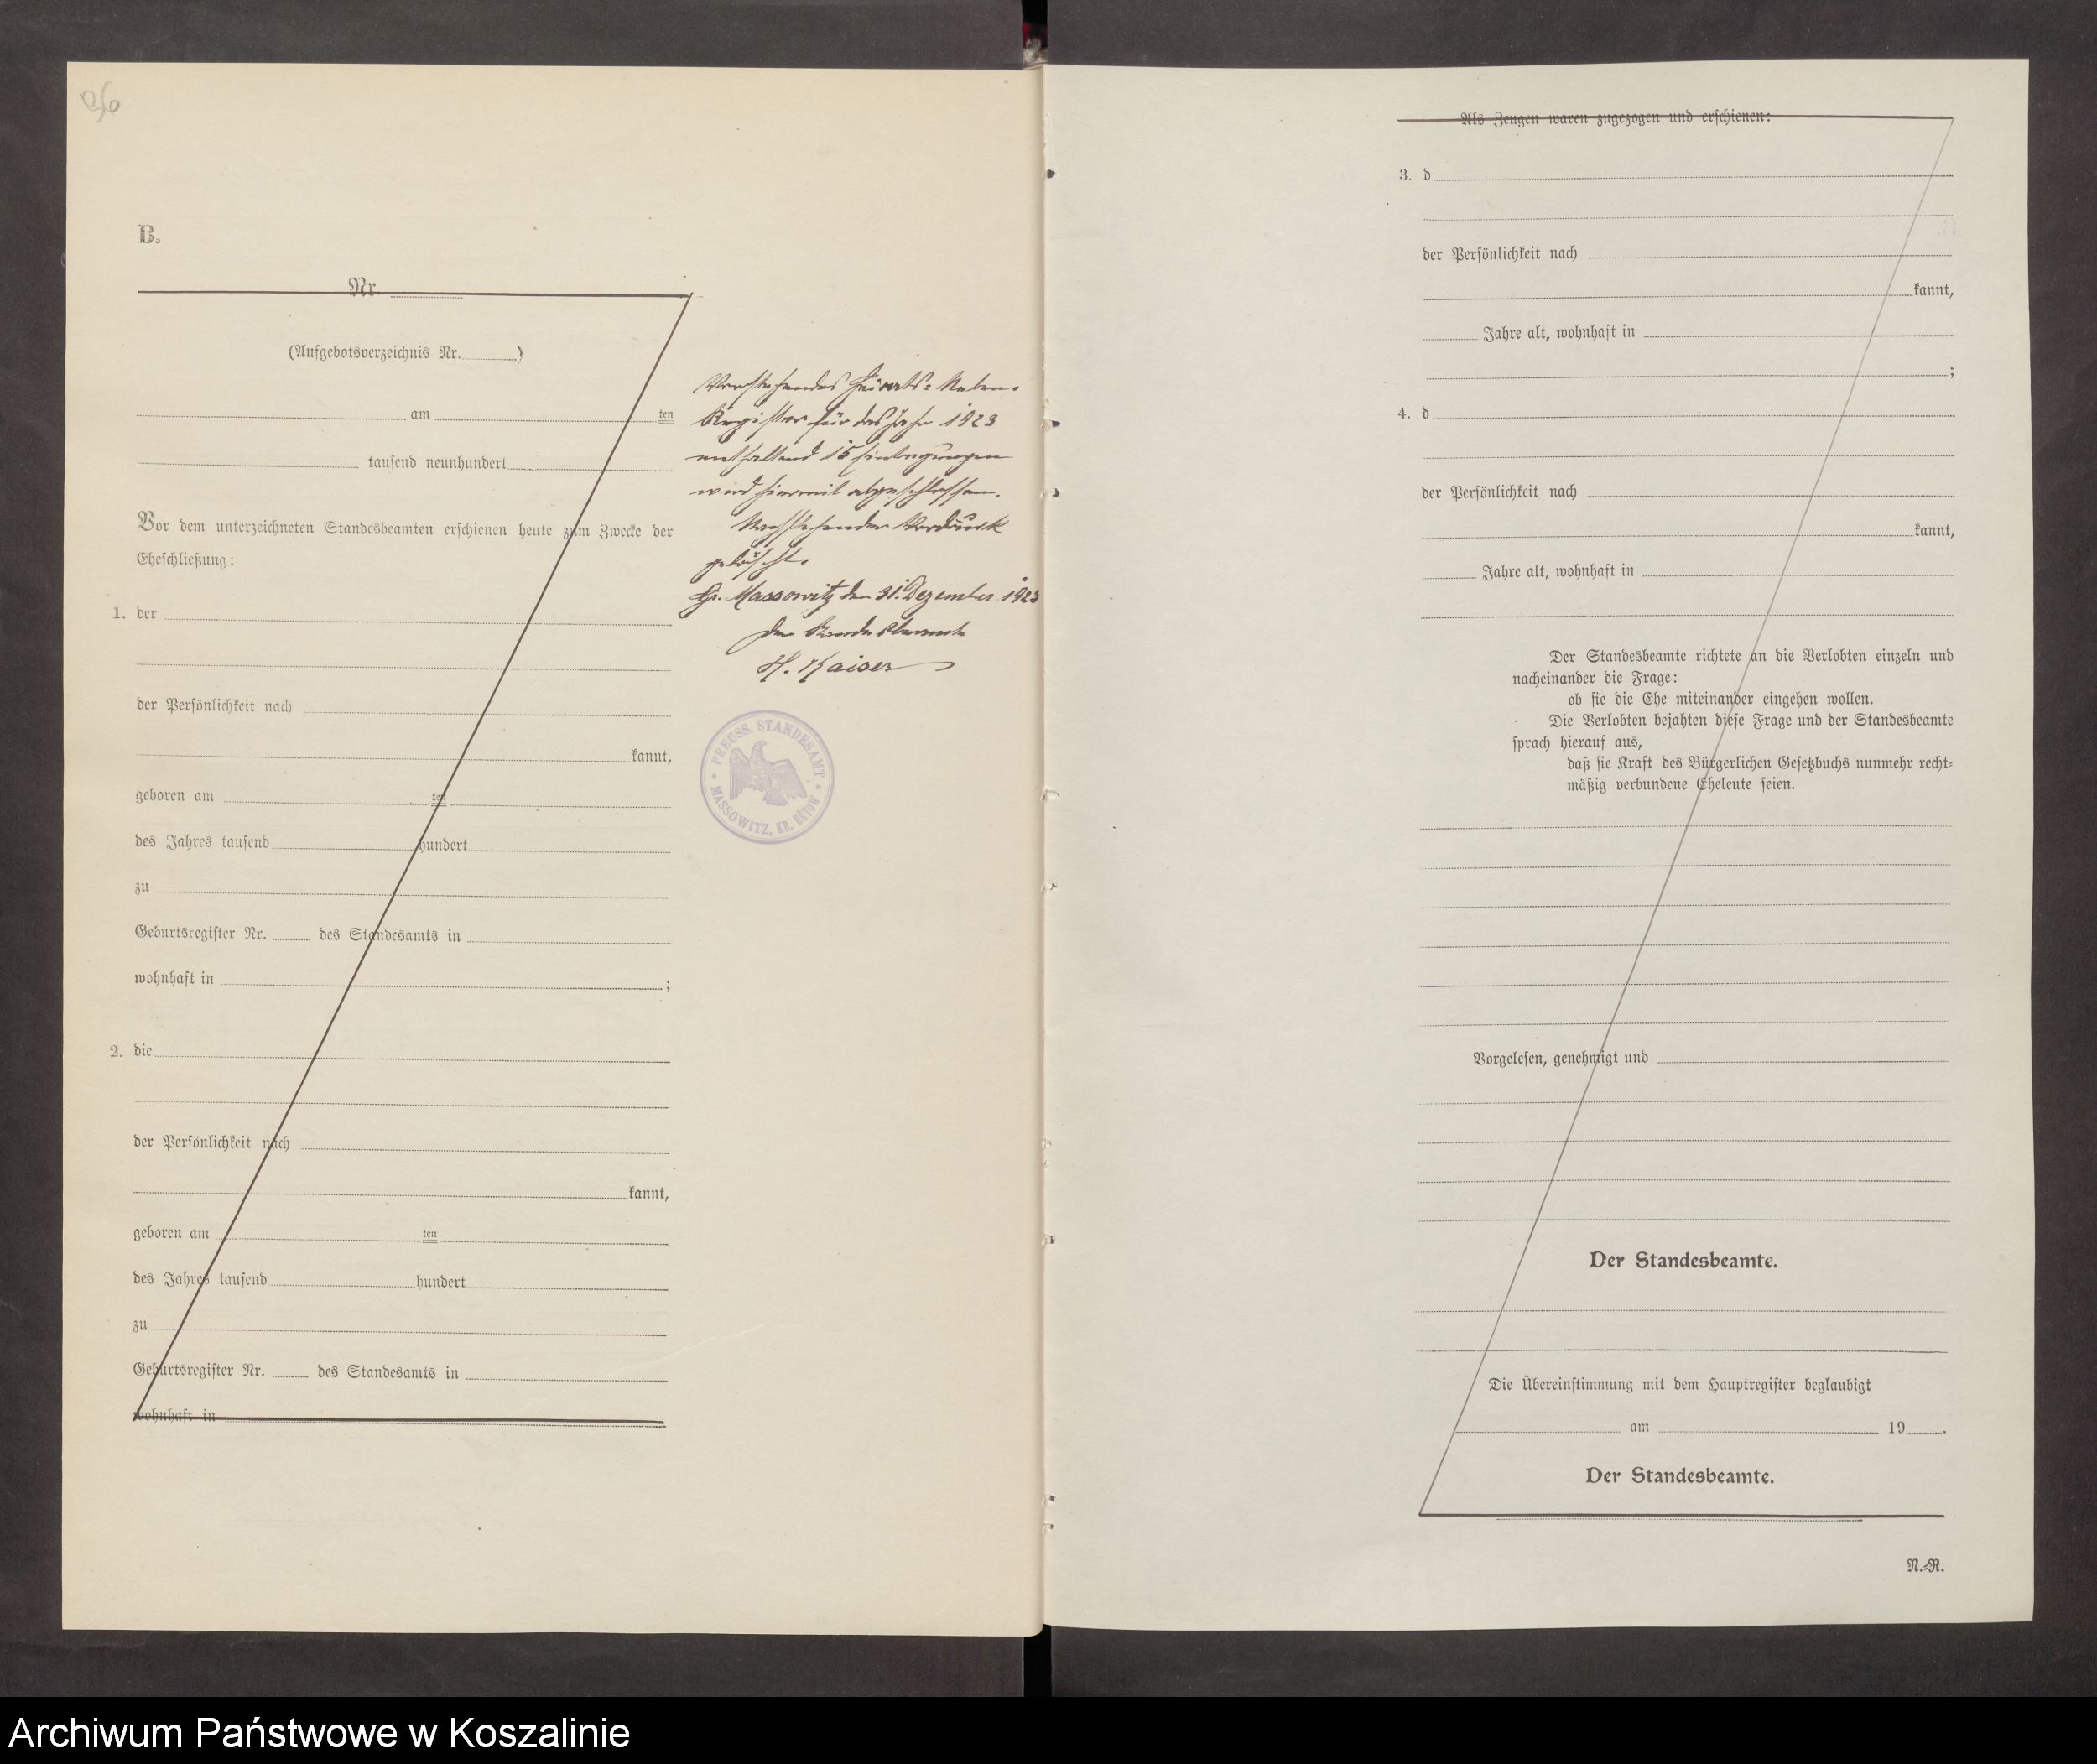 B.
Nr.
(Aufgebotsverzeichnis Nr. )
am ten
tausend neunhundert
Vor dem unterzeichneten Standesbeamten erschienen heute zum Zwecke der
Eheschließung:
1. der
der Persönlichkeit nach
kannt,
geboren am ten
des Jahres tausend hundert
zu
Geburtsregister Nr. des Standesamts in
wohnhaft in ;
2. die
der Persönlichkeit nach
kannt,
geboren am ten
des Jahres tausend hundert
zu
Geburtsregister Nr. des Standesamts in
wohnhaft in
Vorstehendes Heirats-Neben-
Register für das Jahr 1923
enthaltend 15 Eintragungen
wird hiermit abgeschlossen.
Nachstehender Vordruck
gelöscht.
Gr. Massowitz den 31. Dezember 1923
Der Standesbeamte
H. Kaiser
PREUSS. STANDESAMT
MASSOWITZ, KR. BÜTOW
Als Zeugen waren zugezogen und erschienen:
3. d
der Persönlichkeit nach
kannt,
Jahre alt, wohnhaft in
;
4. d
der Persönlichkeit nach
kannt,
Jahre alt, wohnhaft in
Der Standesbeamte richtete an die Verlobten einzeln und
nacheinander die Frage:
ob sie die Ehe miteinander eingehen wollen.
Die Verlobten bejahten diese Frage und der Standesbeamte
sprach hierauf aus,
daß sie Kraft des Bürgerlichen Gesetzbuchs nunmehr recht-
mäßig verbundene Eheleute seien.
Vorgelesen, genehmigt und
Der Standesbeamte.
Die Übereinstimmung mit dem Hauptregister beglaubigt
am 19 .
Der Standesbeamte.
N.-R.
Archiwum Państwowe w Koszalinie